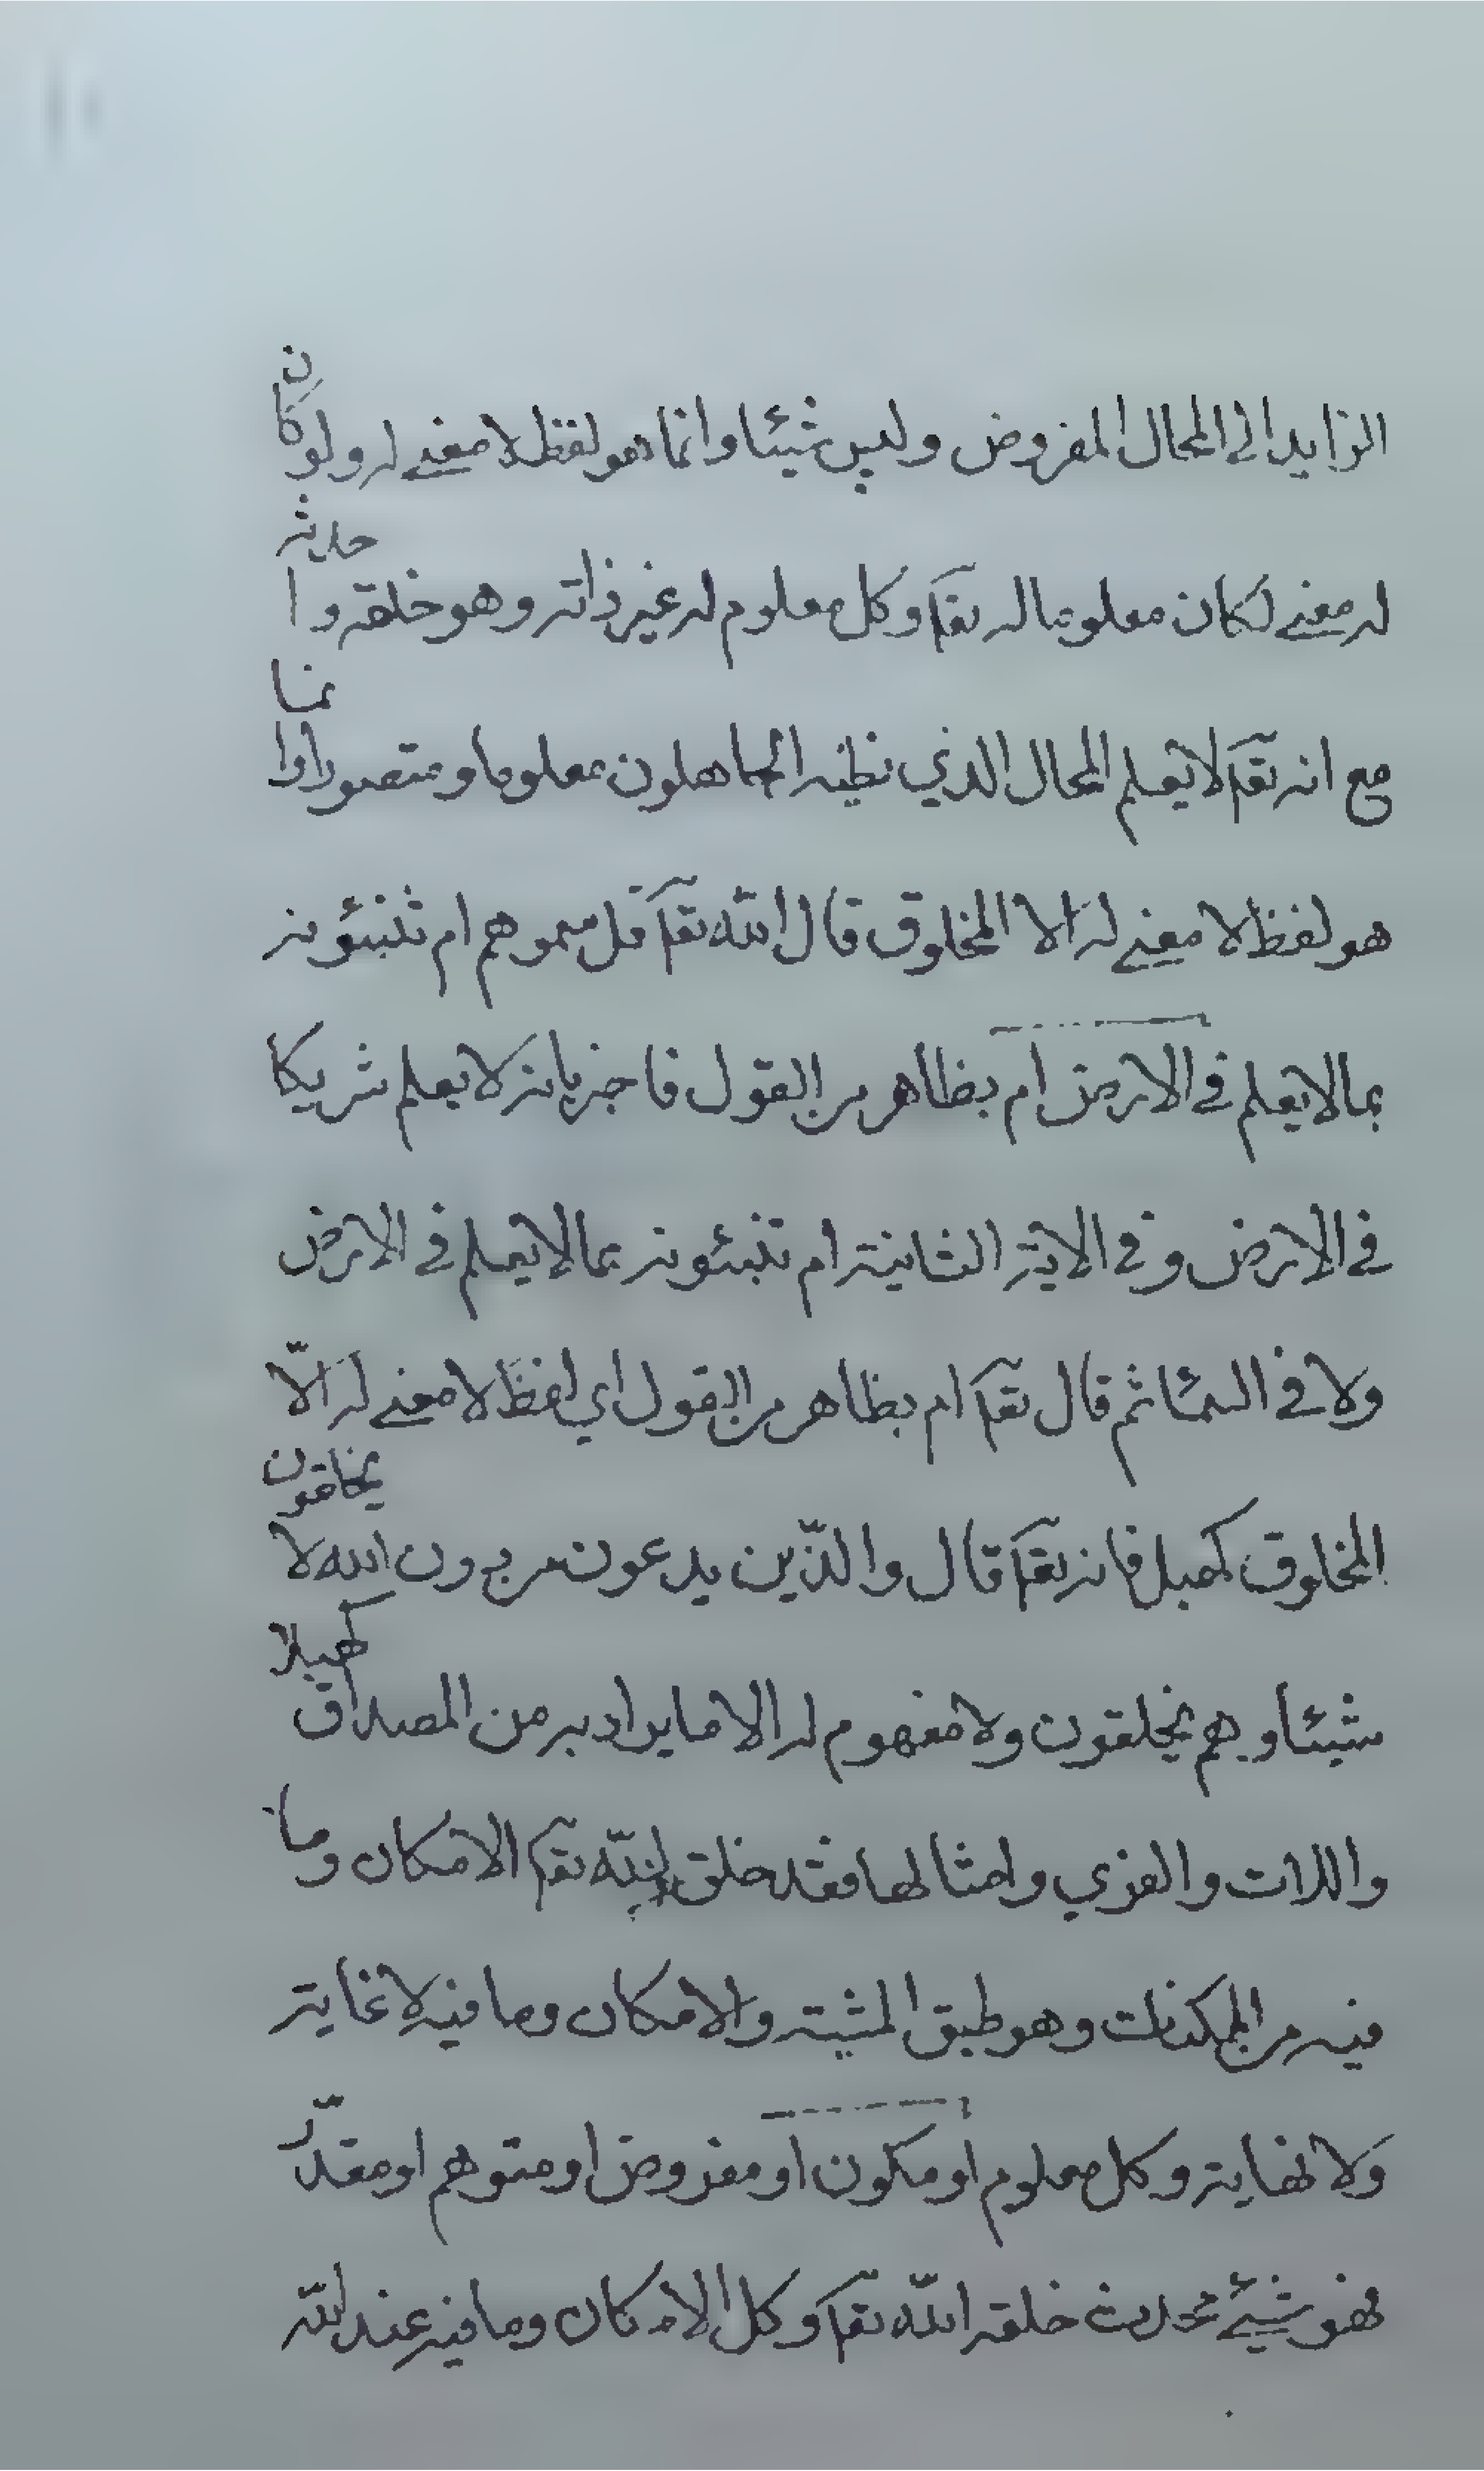 الزايد الي المحال المفروض وليس شيئا وانما هو لفظ لا معني له ولو كان
له معني لكان معلوما له تعا وكل معلوم له غير ذاته وهو خلقه واحدثه
مع انه تعا لا يعلم المحال الذي نظنه الجاهلون معلوما ومتصورا وانما
هو لفظ لا معني له الا المخلوق قال الله تعا قل سموهم ام تنبئونه
بما لا يعلم في الارض ام بظاهر من القول فاخبر بانه لا يعلم شريكا
في الارض وفي الاية الثانية ام تنبئونه بما لا يعلم في الارض
ولا في السماء ثم قال تعا ام بظاهر من القول اي لفظ لا معني له الّا
المخلوق كهبل فانه تعا قال والذّين يدعون من دون الله لا يخلقون
شيئا وهم يخلقون ولا مفهوم له الا ما يراد به من المصداق كهبلا
واللات والعزي وامثالها فقد خلق اللّه تعا الامكان وما
فيه من الممكنات وهو طبق المشية والامكان وما فيه لا غاية
ولا نهاية وكل معلوم او مكون او مفروض او متوهم او مقدّر
فهو شيئ محدث خلقه اللّه تعا وكل الامكان وما فيه عند اللّه